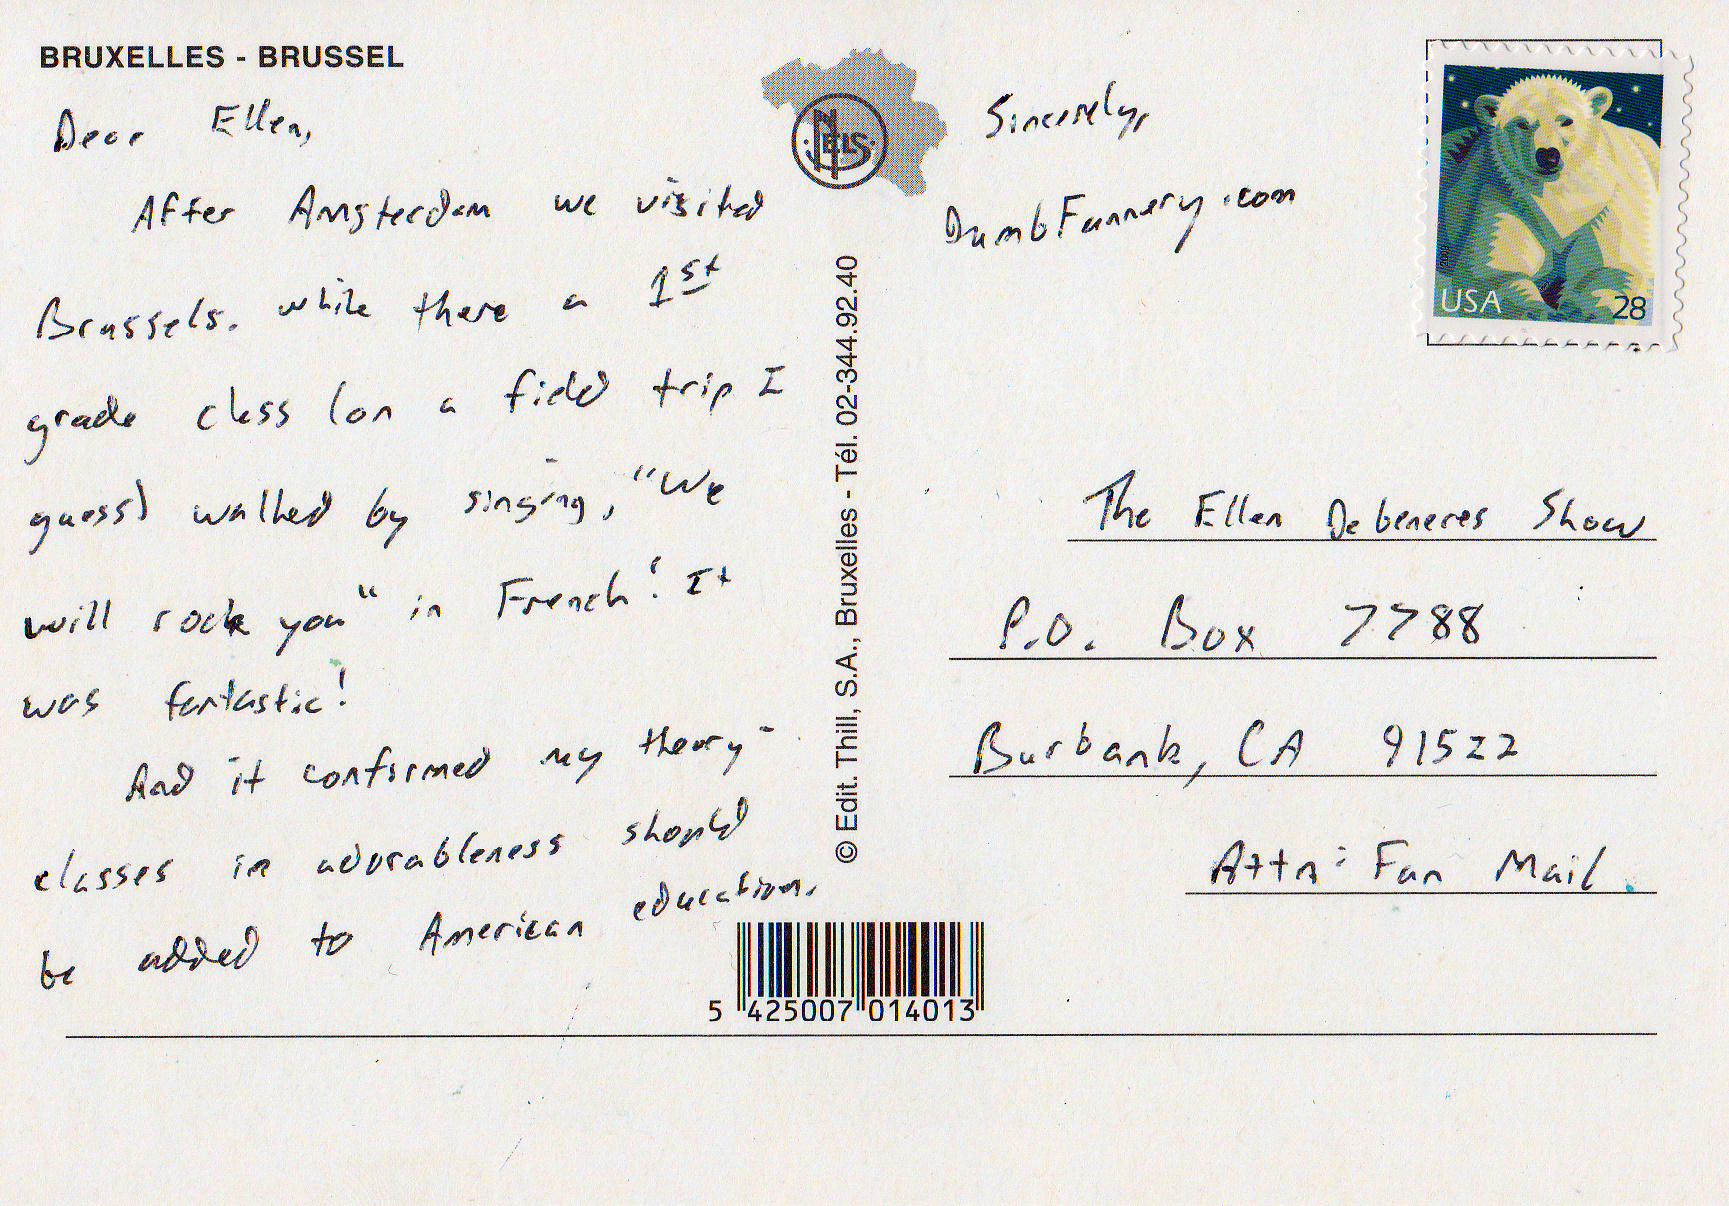 BRUXELLES - BRUSSEL
Dear Ellen,
After Amsterdam we visited
Brussels. While there a 1st
grade class (on a field trip I
guess) walked by singing, "We
will rock you" in French! It
was fantastic!
And it confirmed my theory-
classes in adorableness should
be added to American education.
NELS
© Edit. Thill, S.A., Bruxelles - Tél. 02-344.92.40
5 425007 014013
Sincerely,
DumbFunnery.com
2009
USA 28
The Ellen Debeneres Show
P.O. Box 7788
Burbank, CA 91522
Attn: Fan Mail.